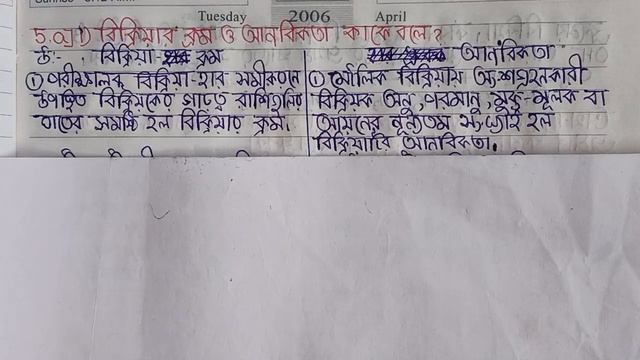 Tuesday 2006 April
5.a) 1) বিক্রিয়ার ক্রম ও আনবিকতা কাকে বলে?
উঃ বিক্রিয়া ক্রম
আনবিকতা
① পরীক্ষালব্ধ বিক্রিয়া-হার সমীকরনে
উপস্থিত বিক্রিয়কের ঘাতে রাশিগুলির
ঘাতের সমষ্টি হল বিক্রিয়ার ক্রম।
① মৌলিক বিক্রিয়ায় অংশগ্রহনকারী
বিক্রিয়ক অনু, পরমানু, মুক্ত-মুলক বা
আয়নের নূন্যতম সংখ্যাই হল
বিক্রিয়াটির আনবিকতা।